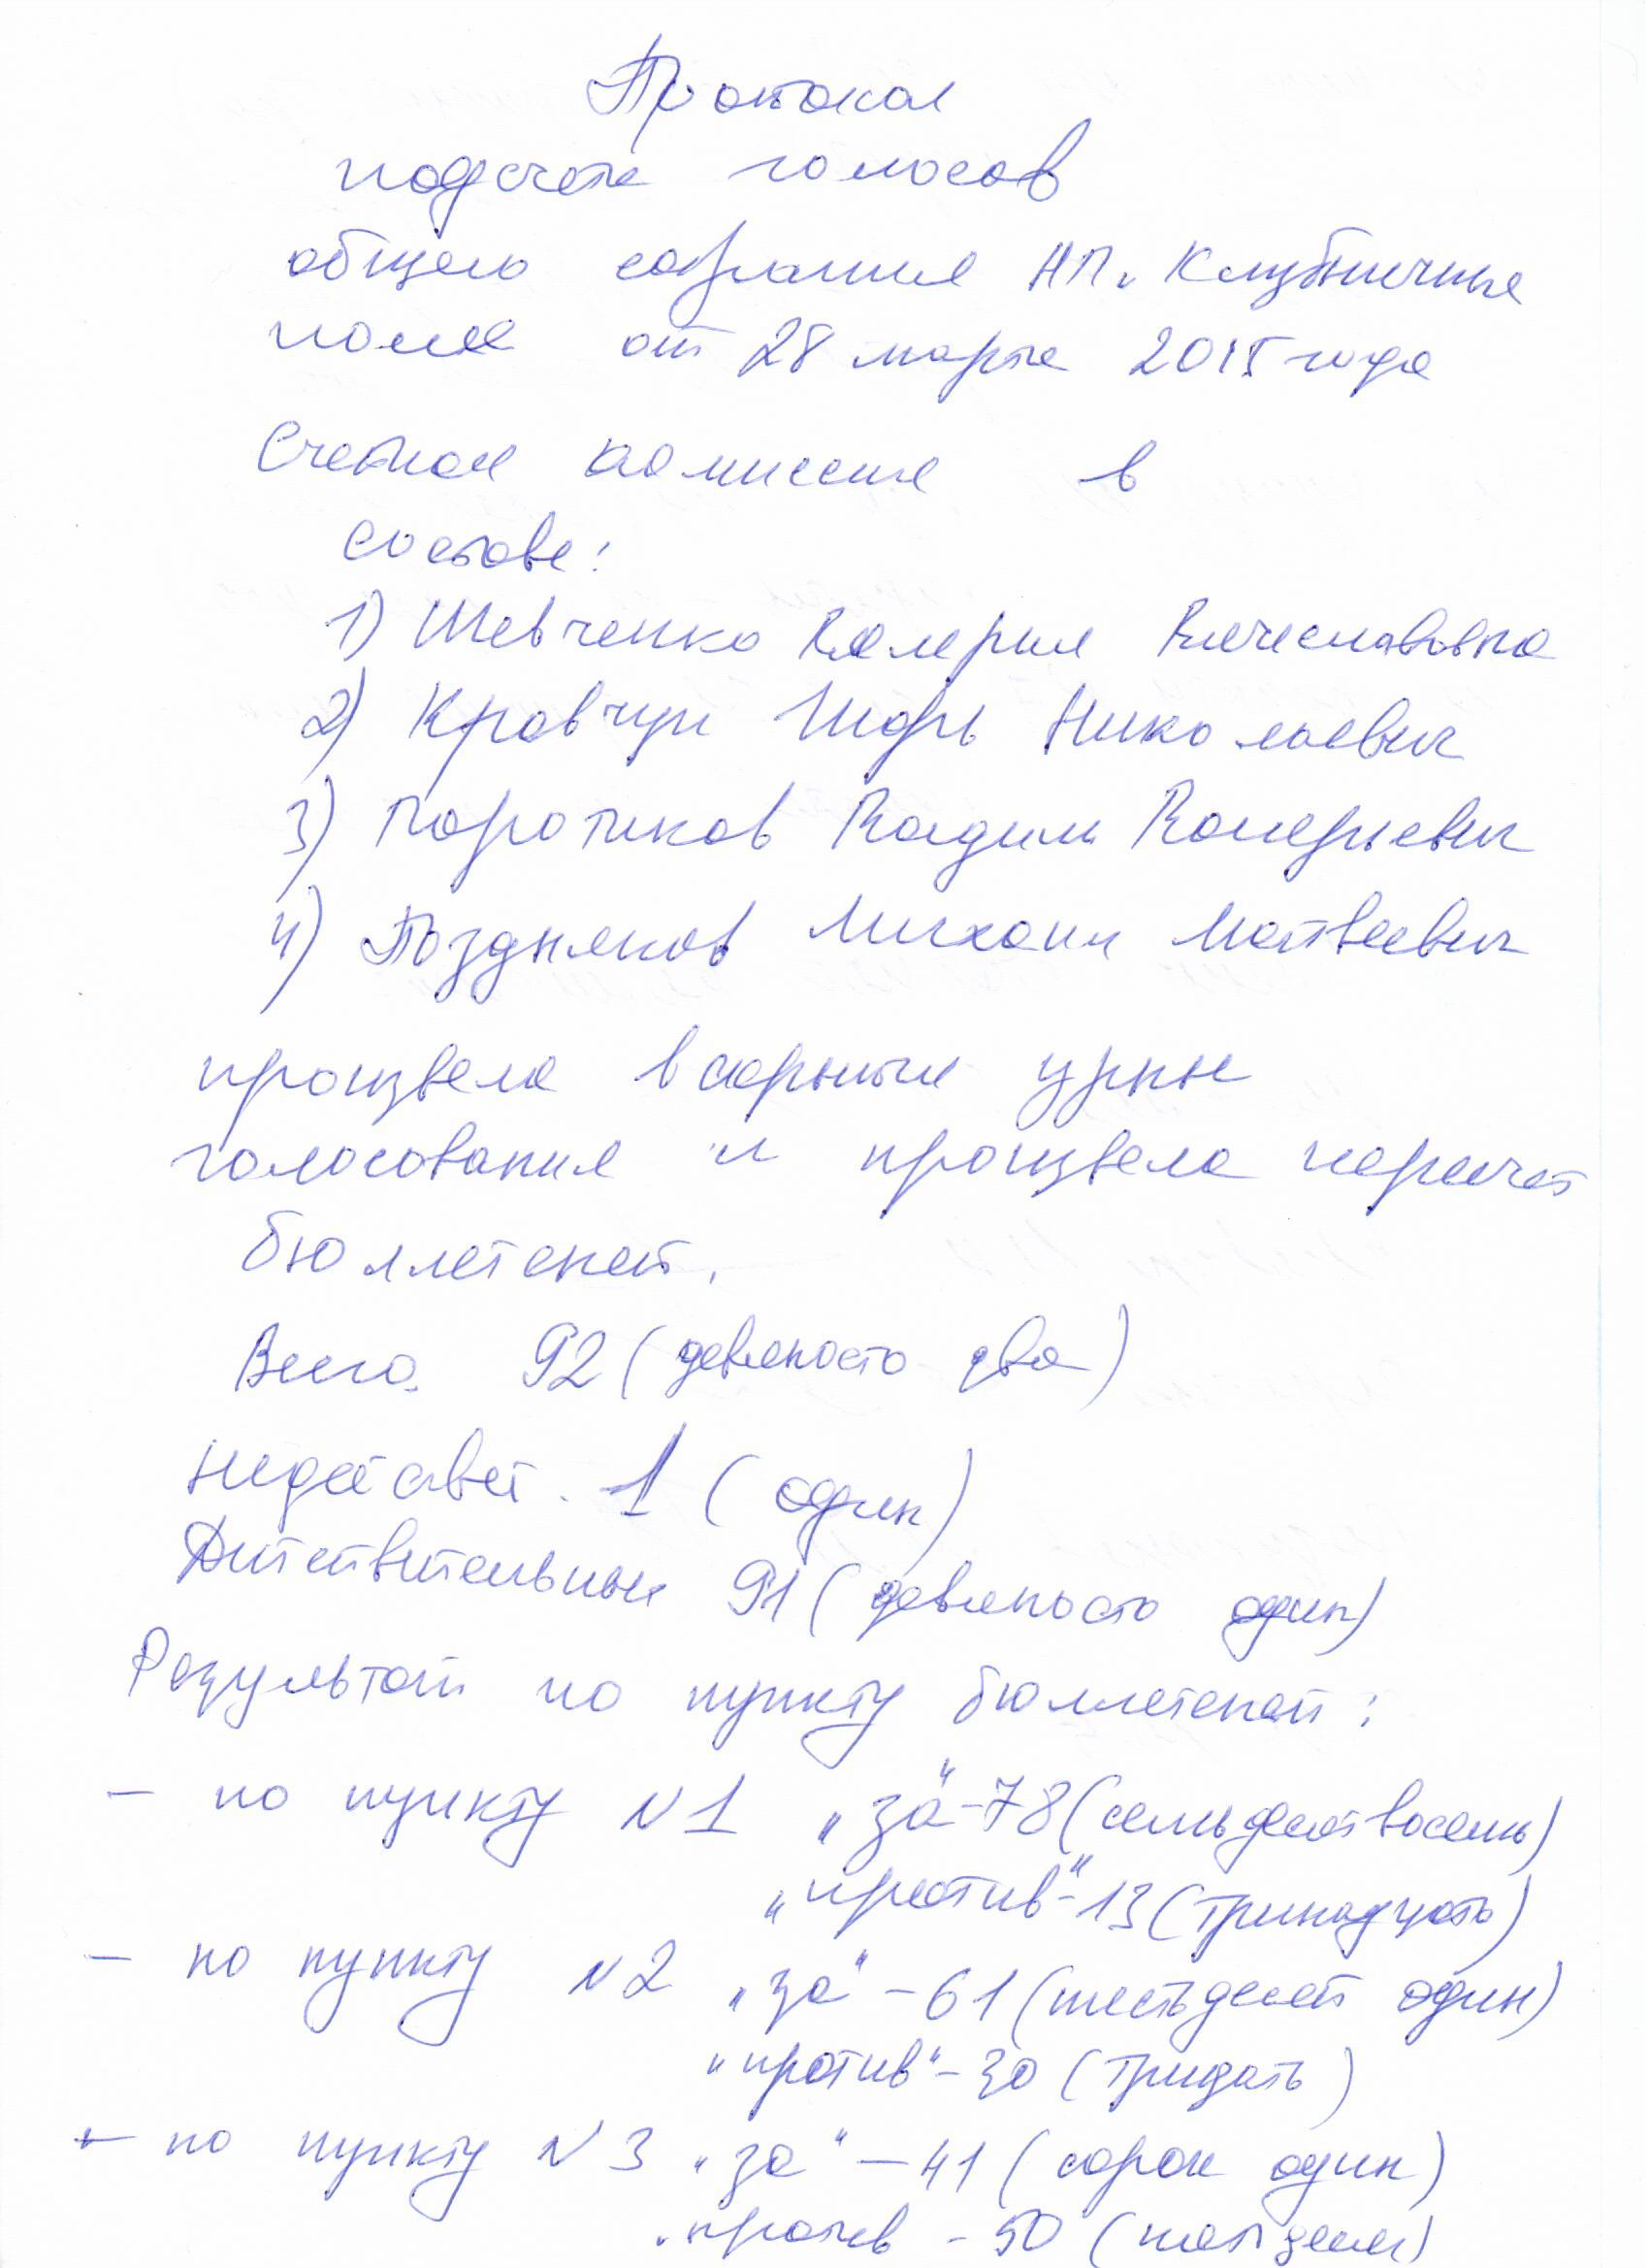 Протокол
подсчета голосов
общего собрания НП "Клубничные
поля от 28 марта 2015 года
Счетная комиссия в
составе:
1) Шевченко Валерия Вячеславовна
2) Кравчук Игорь Николаевич
3) Поротиков Вадим Валерьевич
4) Поздняков Михаил Матвеевич
произвела вскрытие урны
голосования и произвела пересчет
бюллетеней.
Всего. 92 (девяносто два)
Недейств. 1 (один)
Действительных 91 (девяносто один)
Результат по пункту бюллетеней:
- по пункту N1 „за"-78 (семьдесят восемь)
„против"-13 (тринадцать)
- по пункту N2 „за" - 61 (шестьдесят один)
"против" - 30 (тридать)
- по пункту N3 „за" - 41 (сорок один)
"против - 50 (пятьдесят)